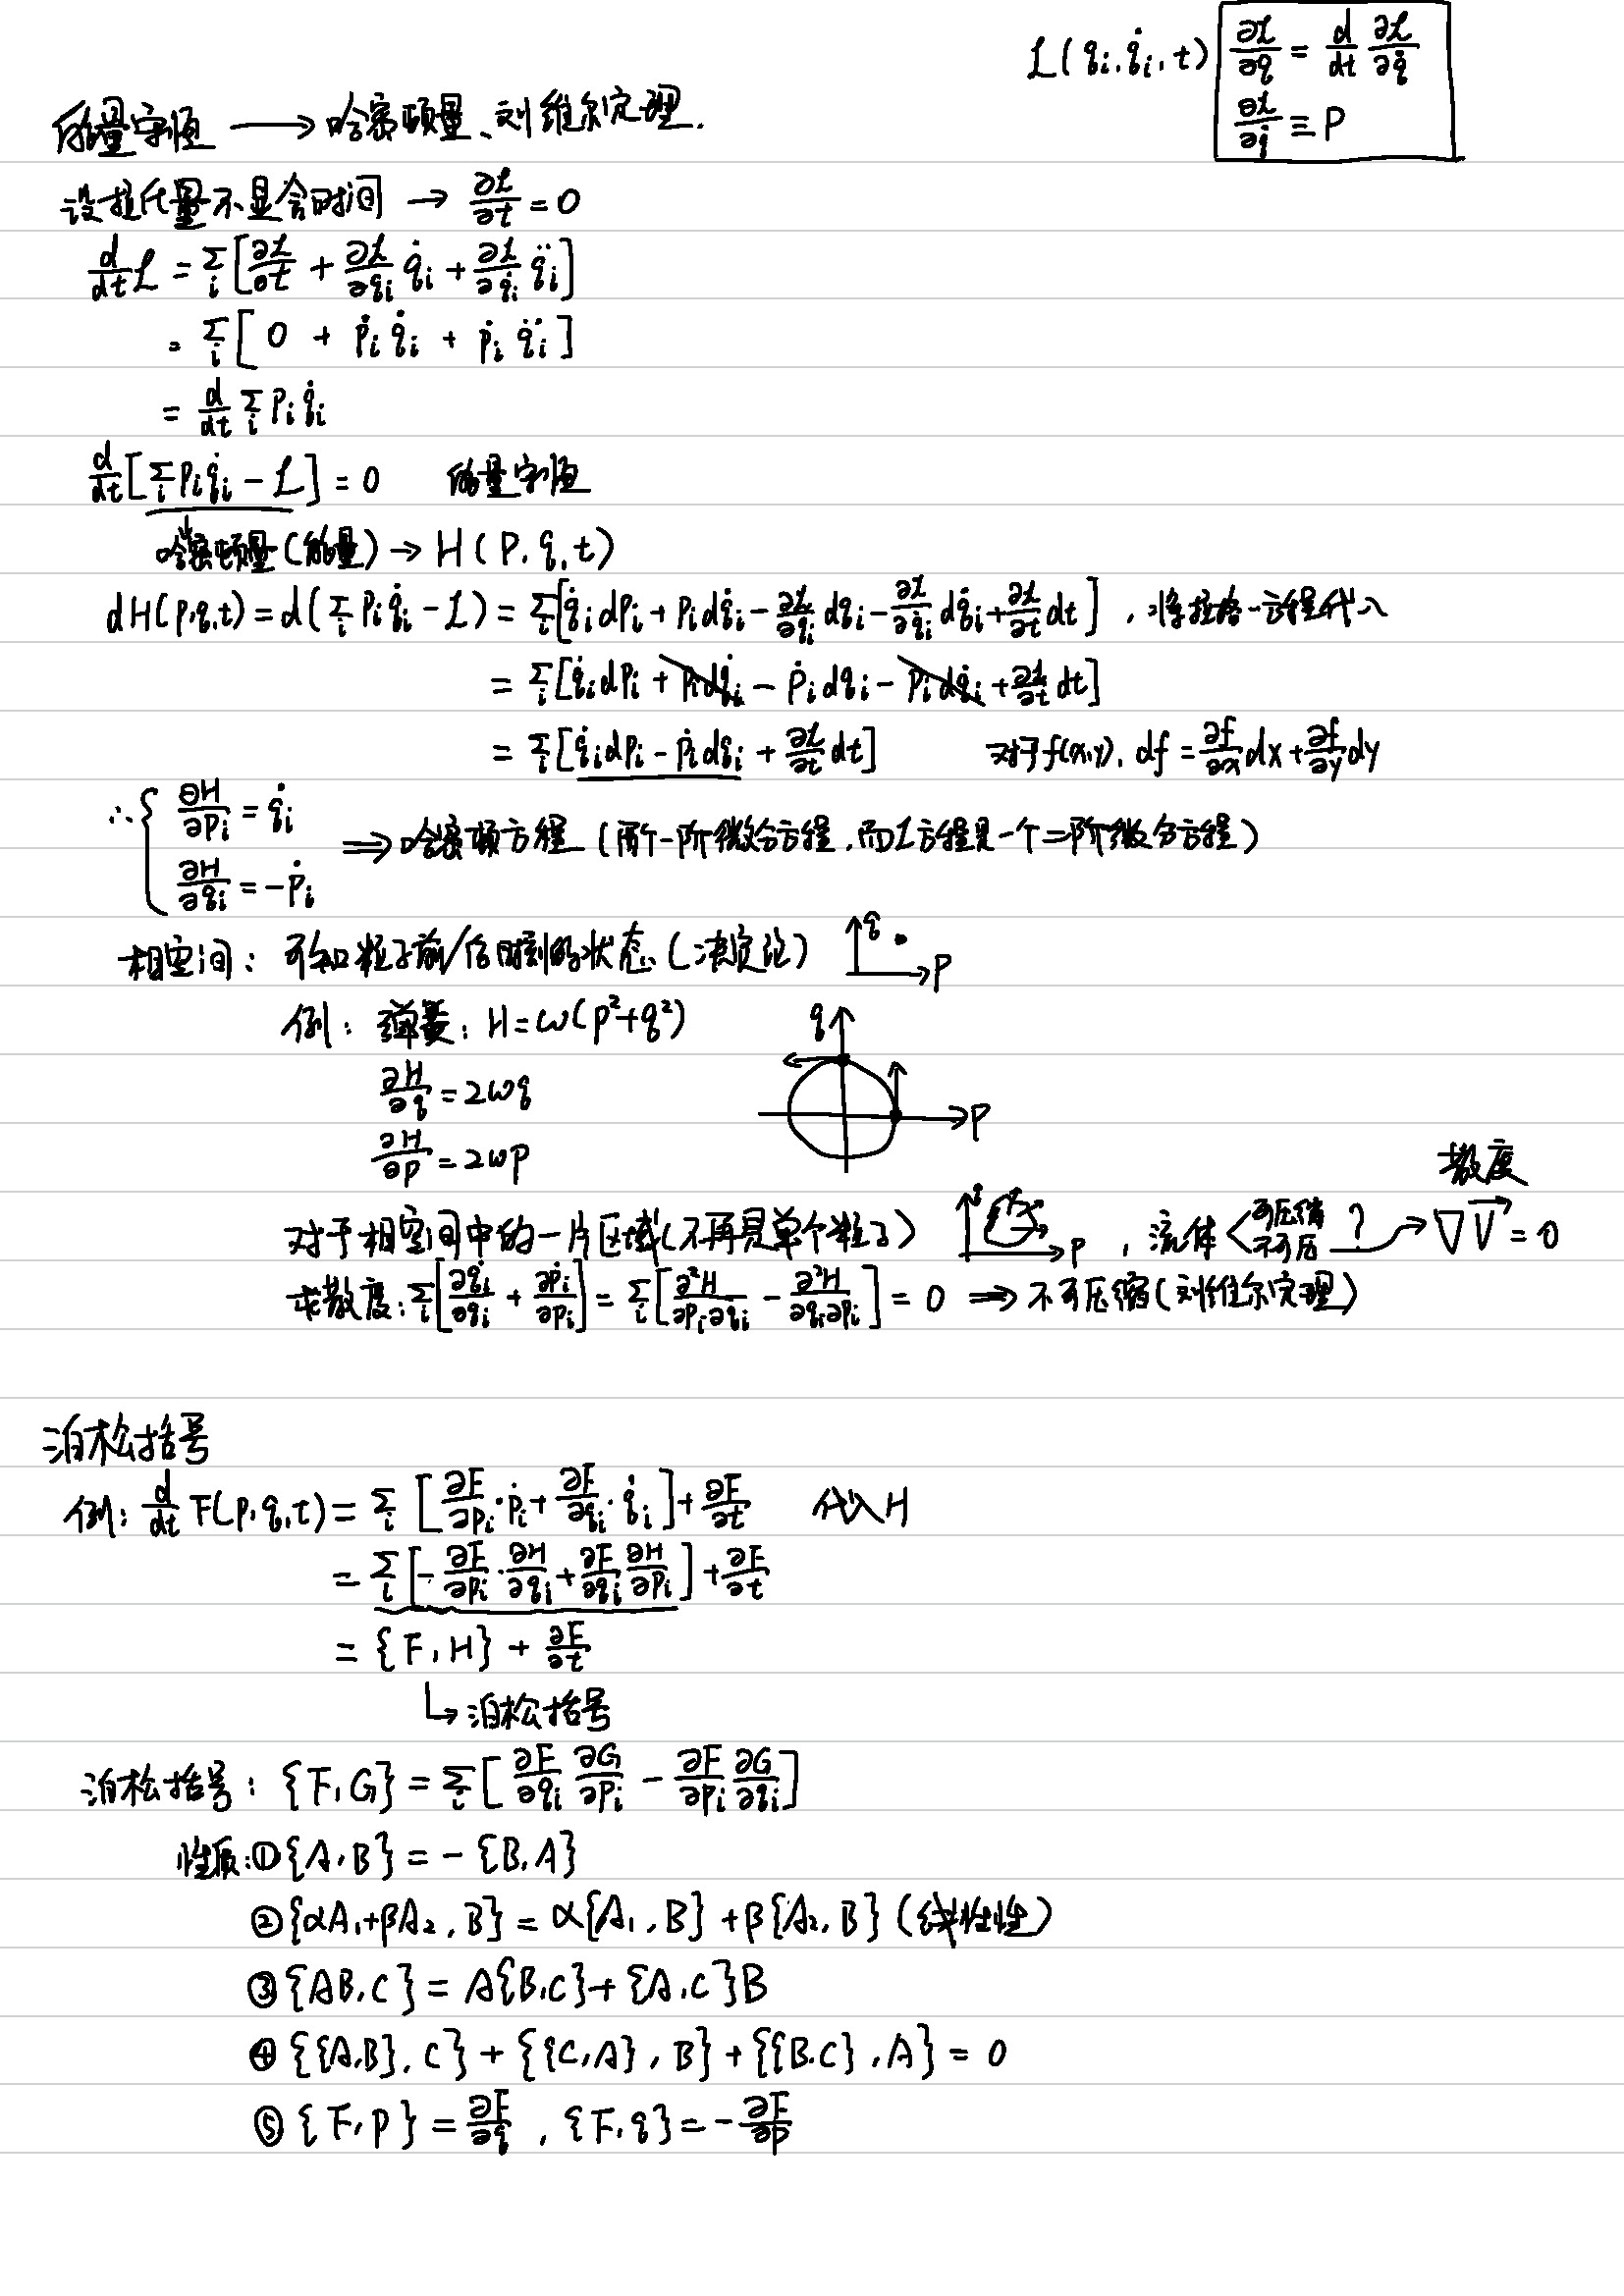 L(qᵢ, q̇ᵢ, t) ∂L/∂q = d/dt ∂L/∂q̇
∂L/∂q̇ ≡ P
能量守恒 ⟶ 哈密顿量、刘维尔定理.
设拉氏量不显含时间 → ∂L/∂t = 0
d/dt L = Σᵢ[∂L/∂t + ∂L/∂qᵢ q̇ᵢ + ∂L/∂q̇ᵢ q̈ᵢ]
= Σᵢ[0 + ṗᵢ q̇ᵢ + pᵢ q̈ᵢ]
= d/dt Σᵢ pᵢ q̇ᵢ
d/dt[Σᵢ pᵢ q̇ᵢ - L] = 0 能量守恒
哈密顿量(能量) → H(P, q, t)
dH(p,q,t) = d(Σᵢ pᵢ q̇ᵢ - L) = Σᵢ[q̇ᵢ dpᵢ + pᵢ dq̇ᵢ - ∂L/∂qᵢ dqᵢ - ∂L/∂q̇ᵢ dq̇ᵢ + ∂L/∂t dt], 将拉格-方程代入
= Σᵢ[q̇ᵢ dpᵢ + pᵢ dq̇ᵢ - ṗᵢ dqᵢ - pᵢ dq̇ᵢ + ∂L/∂t dt]
= Σᵢ[q̇ᵢ dpᵢ - ṗᵢ dqᵢ + ∂L/∂t dt] 对于f(x,y), df = ∂f/∂x dx + ∂f/∂y dy
∴ { ∂H/∂pᵢ = q̇ᵢ
⟹ 哈密顿方程 (两个一阶微分方程,而L方程是一个二阶微分方程)
∂H/∂qᵢ = -ṗᵢ
相空间: 可知粒子前/后时刻的状态 (决定论) q P
例: 弹簧: H = ω(p²+q²) q P
∂H/∂q = 2ωq
∂H/∂p = 2ωp
散度
对于相空间中的一片区域(不再是单个粒子) q P, 流体 < 可压缩 不可压 ? → ∇V⃗ = 0
求散度: Σᵢ[∂q̇ᵢ/∂qᵢ + ∂ṗᵢ/∂pᵢ] = Σᵢ[∂²H/∂pᵢ∂qᵢ - ∂²H/∂qᵢ∂pᵢ] = 0 ⟹ 不可压缩(刘维尔定理)
泊松括号
例: d/dt F(p,q,t) = Σᵢ[∂F/∂pᵢ · ṗᵢ + ∂F/∂qᵢ · q̇ᵢ] + ∂F/∂t 代入H
= Σᵢ[-∂F/∂pᵢ · ∂H/∂qᵢ + ∂F/∂qᵢ ∂H/∂pᵢ] + ∂F/∂t
= {F, H} + ∂F/∂t
↳ 泊松括号
泊松括号: {F, G} = Σᵢ[∂F/∂qᵢ ∂G/∂pᵢ - ∂F/∂pᵢ ∂G/∂qᵢ]
性质: ① {A, B} = -{B, A}
② {αA₁+βA₂, B} = α{A₁, B} + β{A₂, B} (线性性)
③ {AB, C} = A{B, C} + {A, C}B
④ {{A,B}, C} + {{C,A}, B} + {{B,C}, A} = 0
⑤ {F, p} = ∂F/∂q, {F, q} = -∂F/∂p